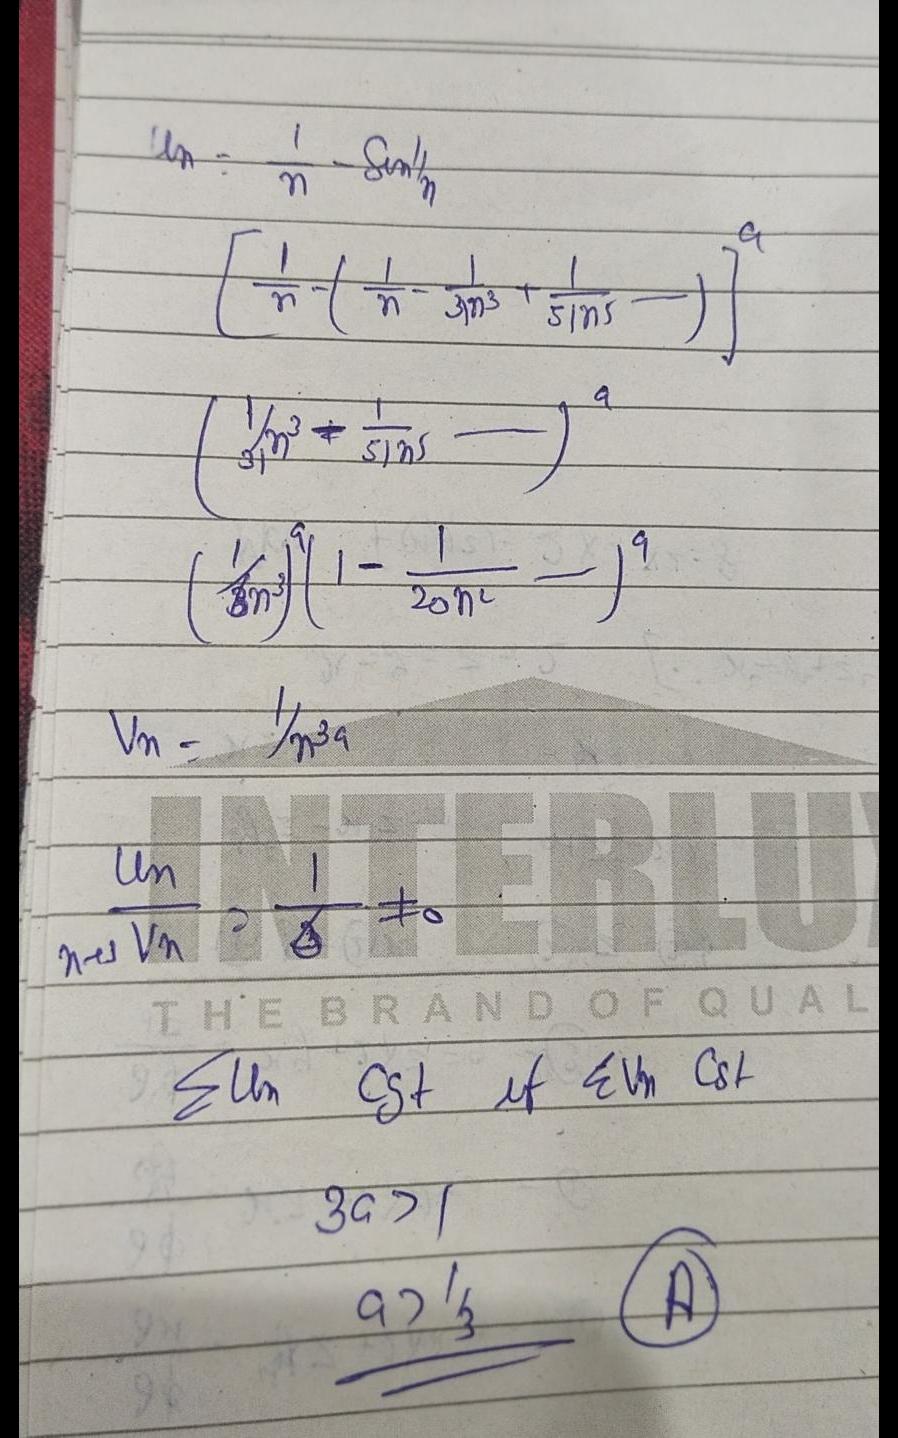 Un = 1/n - Sin 1/n
[1/n - (1/n - 1/3!n³ + 1/5!n⁵ —)]ᵃ
(1/3!n³ - 1/5!n⁵ —)ᵃ
(1/6n³)ᵃ (1 - 1/20n² —)ᵃ
Vn = 1/n³ᵃ
Un/Vn = 1/6 ≠ 0
n→∞
INTERLUX
THE BRAND OF QUAL
ΣUn Cgt if ΣVn Cgt
3a > 1
a > 1/3 (A)